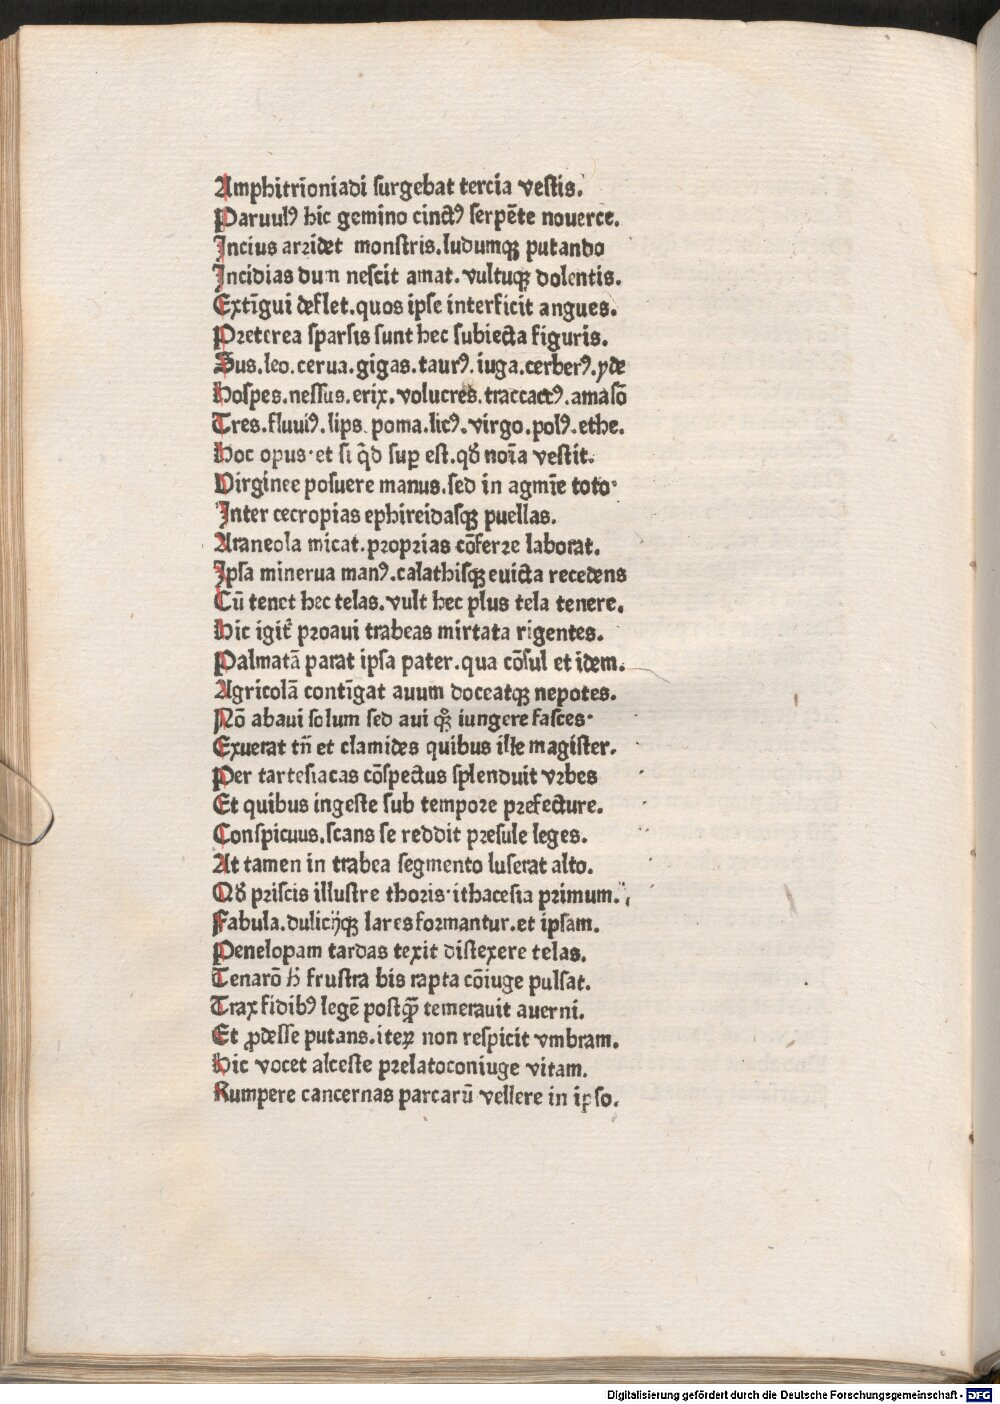 Amphitrioniadi surgebat tercia vestis.
Paruulꝰ hic gemino cinctꝰ serpēte nouerce.
Incius arꝛidet monstris.ludumqꝫ putando
Incidias dum nescit amat.vultuqꝫ dolentis.
Extīgui deflet.quos ipse interficit angues.
Pꝛeterea sparsis sunt hec subiecta figuris.
Sus.leo.cerua.gigas.taurꝰ.iuga.cerberꝰ.yde
Hospes.nessus.erix.volucres.traccactꝰ.amasō
Tres.fluuiꝰ.lips.poma.licꝰ.virgo.polꝰ.ethe.
Hoc opus·et si q̄d suꝑ est.qð noīa vestit.
Virginee posuere manus.sed in agmīe toto·
Inter cecropias ephireidasqꝫ puellas.
Araneola micat.pꝛopꝛias cōferꝛe laboꝛat.
Ipsa minerua manꝰ.calathisqꝫ euicta recedens
Cū tenet hec telas.vult hec plus tela tenere.
Hic igit᷑ pꝛoaui trabeas mirtata rigentes.
Palmatā parat ipsa pater.qua cōsul et idem.
Agricolā contīgat auum doceatqꝫ nepotes.
Nō abaui solum sed aui qͦꝫ iungere fasces·
Exuerat tn̄ et clamides quibus ille magister.
Per tartesiacas cōspectus splenduit vꝛbes
Et quibus ingeste sub tempoꝛe pꝛefecture.
Conspicuus.scans se reddit pꝛesule leges.
At tamen in trabea segmento luserat alto.
Qð pꝛiscis illustre thoꝛis·ithacesia pꝛimum.
Fabula.dulicijqꝫ lares foꝛmantur.et ipsam.
Penelopam tardas texit distexere telas.
Tenarō h̄ frustra bis rapta cōiuge pulsat.
Trax fidibꝰ legē postqꝫ̄ temerauit auerni.
Et ꝓdesse putans.iteꝝ non respicit vmbram.
Hic vocet alceste pꝛelatoconiuge vitam.
Rumpere cancernas parcarū vellere in ipso.
Digitalisierung gefördert durch die Deutsche Forschungsgemeinschaft - DFG